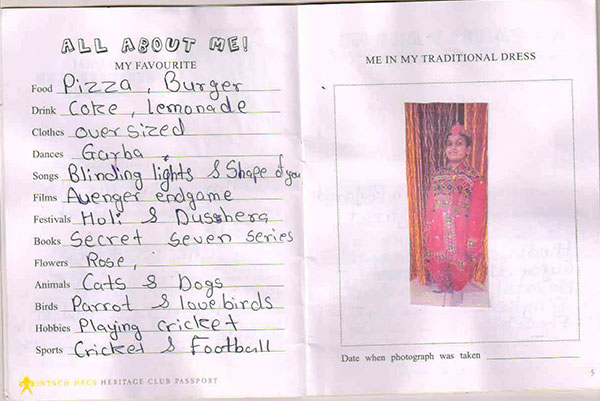 ALL ABOUT ME!
MY FAVOURITE
Food Pizza, Burger
Drink Coke, Lemonade
Clothes oversized
Dances Garba
Songs Blinding lights & Shape of you
Films Avenger endgame
Festivals Holi & Dusshera
Books Secret Seven Series
Flowers Rose,
Animals Cats & Dogs
Birds Parrot & lovebirds
Hobbies Playing cricket
Sports Cricket & Football
INTACH HECS HERITAGE CLUB PASSPORT
ME IN MY TRADITIONAL DRESS
Date when photograph was taken
5